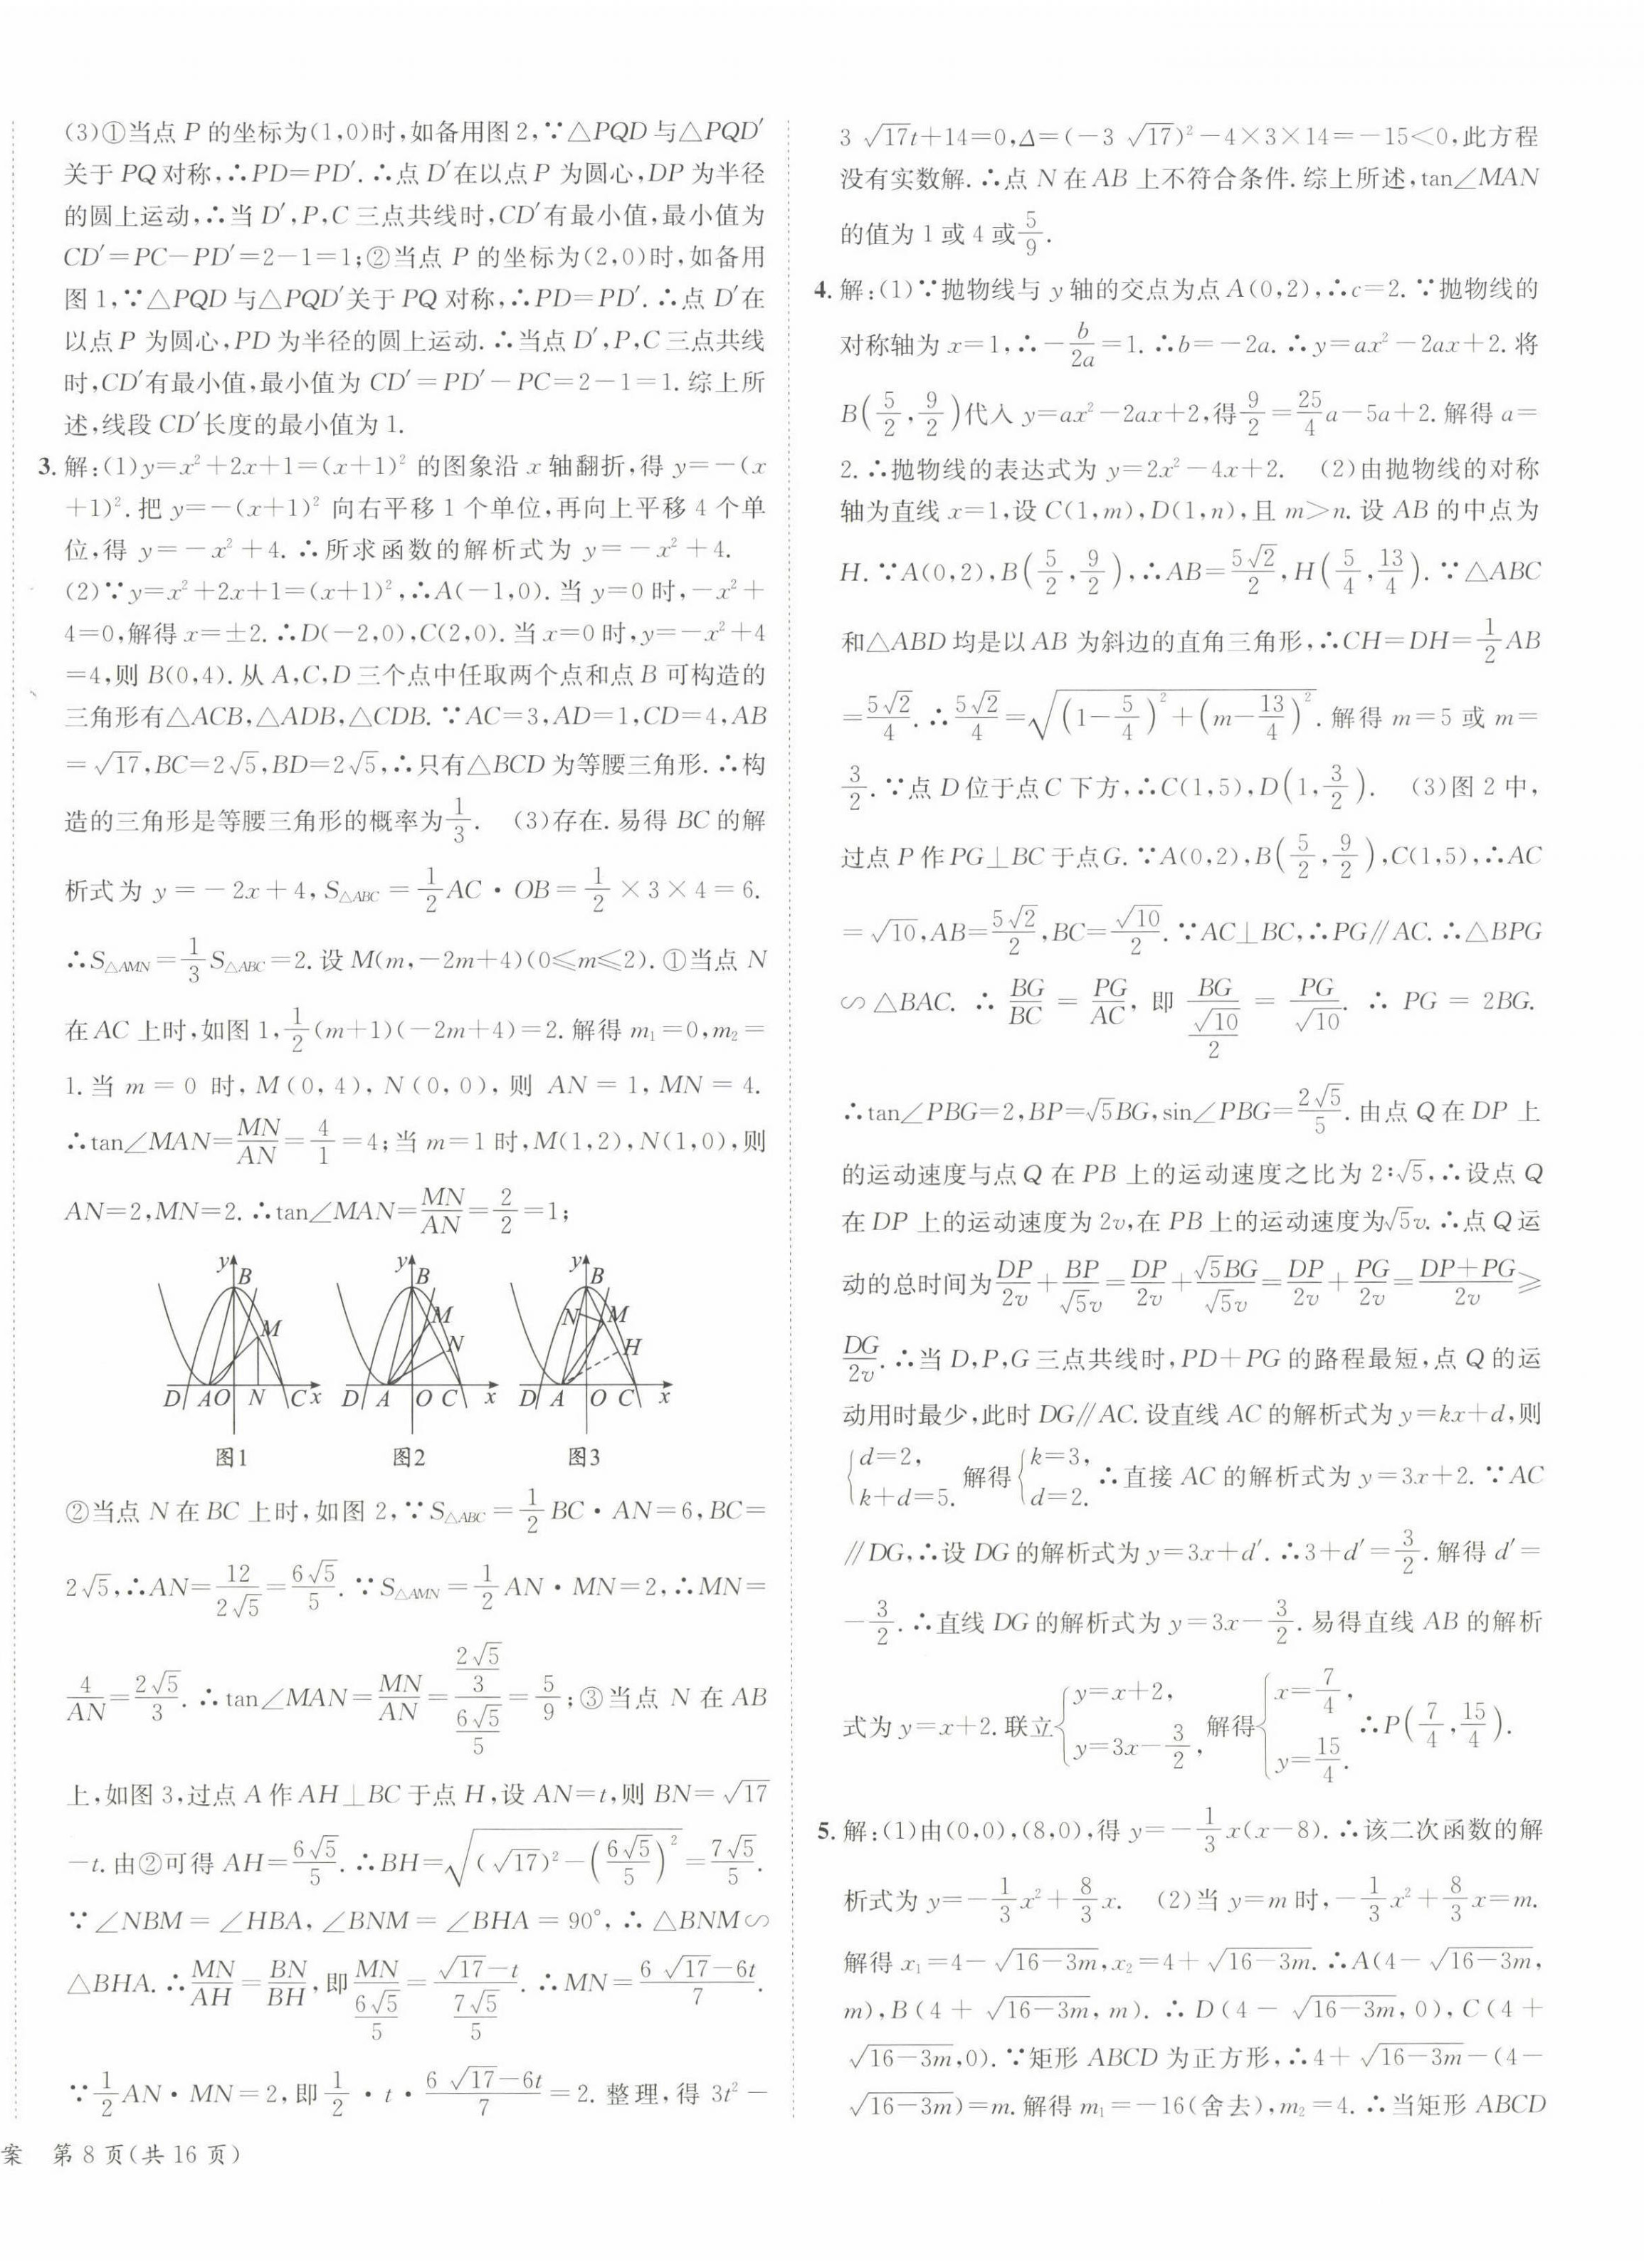 (3)①当点 P 的坐标为(1,0)时,如备用图 2,∵△PQD 与△PQD′
关于 PQ 对称,∴PD=PD′.∴点 D′在以点 P 为圆心,DP 为半径
的圆上运动,∴当 D′,P,C 三点共线时,CD′有最小值,最小值为
CD′=PC−PD′=2−1=1;②当点 P 的坐标为(2,0)时,如备用
图 1,∵△PQD 与△PQD′关于 PQ 对称,∴PD=PD′.∴点 D′在
以点 P 为圆心,PD 为半径的圆上运动.∴当点 D′,P,C 三点共线
时,CD′有最小值,最小值为 CD′=PD′−PC=2−1=1.综上所
述,线段 CD′长度的最小值为 1.
3. 解:(1)y=x²+2x+1=(x+1)² 的图象沿 x 轴翻折,得 y=−(x
+1)².把 y=−(x+1)² 向右平移 1 个单位,再向上平移 4 个单
位,得 y=−x²+4.∴所求函数的解析式为 y=−x²+4.
(2)∵y=x²+2x+1=(x+1)²,∴A(−1,0).当 y=0 时,−x²+
4=0,解得 x=±2.∴D(−2,0),C(2,0).当 x=0 时,y=−x²+4
=4,则 B(0,4).从 A,C,D 三个点中任取两个点和点 B 可构造的
三角形有△ACB,△ADB,△CDB.∵AC=3,AD=1,CD=4,AB
=√17,BC=2√5,BD=2√5,∴只有△BCD 为等腰三角形.∴构
造的三角形是等腰三角形的概率为1/3. (3)存在.易得 BC 的解
析式为 y=−2x+4,S△ABC=1/2 AC·OB=1/2×3×4=6.
∴S△AMN=1/3 S△ABC=2.设 M(m,−2m+4)(0≤m≤2).①当点 N
在 AC 上时,如图 1,1/2(m+1)(−2m+4)=2.解得 m₁=0,m₂=
1.当 m=0 时,M(0,4),N(0,0),则 AN=1,MN=4.
∴tan∠MAN=MN/AN=4/1=4;当 m=1 时,M(1,2),N(1,0),则
AN=2,MN=2.∴tan∠MAN=MN/AN=2/2=1;
y B M D A O N C x
y B M N D A O C x
y B N M H D A O C x
图1 图2 图3
②当点 N 在 BC 上时,如图 2,∵S△ABC=1/2 BC·AN=6,BC=
2√5,∴AN=12/(2√5)=6√5/5.∵S△AMN=1/2 AN·MN=2,∴MN=
4/AN=2√5/3.∴tan∠MAN=MN/AN=(2√5/3)/(6√5/5)=5/9;③当点 N 在 AB
上,如图 3,过点 A 作 AH⊥BC 于点 H,设 AN=t,则 BN=√17
−t.由②可得 AH=6√5/5.∴BH=√((√17)²−(6√5/5)²)=7√5/5.
∵∠NBM=∠HBA,∠BNM=∠BHA=90°,∴△BNM∽
△BHA.∴MN/AH=BN/BH,即MN/(6√5/5)=(√17−t)/(7√5/5).∴MN=(6√17−6t)/7.
∵1/2 AN·MN=2,即1/2·t·(6√17−6t)/7=2.整理,得 3t²−
案 第 8 页(共 16 页)
3√17t+14=0,Δ=(−3√17)²−4×3×14=−15<0,此方程
没有实数解.∴点 N 在 AB 上不符合条件.综上所述,tan∠MAN
的值为 1 或 4 或5/9.
4. 解:(1)∵抛物线与 y 轴的交点为点 A(0,2),∴c=2.∵抛物线的
对称轴为 x=1,∴−b/2a=1.∴b=−2a.∴y=ax²−2ax+2.将
B(5/2,9/2)代入 y=ax²−2ax+2,得9/2=25/4 a−5a+2.解得 a=
2.∴抛物线的表达式为 y=2x²−4x+2. (2)由抛物线的对称
轴为直线 x=1,设 C(1,m),D(1,n),且 m>n.设 AB 的中点为
H.∵A(0,2),B(5/2,9/2),∴AB=5√2/2,H(5/4,13/4).∵△ABC
和△ABD 均是以 AB 为斜边的直角三角形,∴CH=DH=1/2 AB
=5√2/4.∴5√2/4=√((1−5/4)²+(m−13/4)²).解得 m=5 或 m=
3/2.∵点 D 位于点 C 下方,∴C(1,5),D(1,3/2). (3)图 2 中,
过点 P 作 PG⊥BC 于点 G.∵A(0,2),B(5/2,9/2),C(1,5),∴AC
=√10,AB=5√2/2,BC=√10/2.∵AC⊥BC,∴PG∥AC.∴△BPG
∽△BAC.∴BG/BC=PG/AC,即BG/(√10/2)=PG/√10.∴PG=2BG.
∴tan∠PBG=2,BP=√5BG,sin∠PBG=2√5/5.由点 Q 在 DP 上
的运动速度与点 Q 在 PB 上的运动速度之比为 2∶√5,∴设点 Q
在 DP 上的运动速度为 2v,在 PB 上的运动速度为√5v.∴点 Q 运
动的总时间为DP/2v+BP/√5v=DP/2v+√5BG/√5v=DP/2v+PG/2v=(DP+PG)/2v≥
DG/2v.∴当 D,P,G 三点共线时,PD+PG 的路程最短,点 Q 的运
动用时最少,此时 DG∥AC.设直线 AC 的解析式为 y=kx+d,则
{d=2, k+d=5. 解得{k=3, d=2. ∴直接 AC 的解析式为 y=3x+2.∵AC
∥DG,∴设 DG 的解析式为 y=3x+d′.∴3+d′=3/2.解得 d′=
−3/2.∴直线 DG 的解析式为 y=3x−3/2.易得直线 AB 的解析
式为 y=x+2.联立{y=x+2, y=3x−3/2, 解得{x=7/4, y=15/4. ∴P(7/4,15/4).
5. 解:(1)由(0,0),(8,0),得 y=−1/3 x(x−8).∴该二次函数的解
析式为 y=−1/3 x²+8/3 x. (2)当 y=m 时,−1/3 x²+8/3 x=m.
解得 x₁=4−√(16−3m),x₂=4+√(16−3m).∴A(4−√(16−3m),
m),B(4+√(16−3m),m).∴D(4−√(16−3m),0),C(4+
√(16−3m),0).∵矩形 ABCD 为正方形,∴4+√(16−3m)−(4−
√(16−3m))=m.解得 m₁=−16(舍去),m₂=4.∴当矩形 ABCD